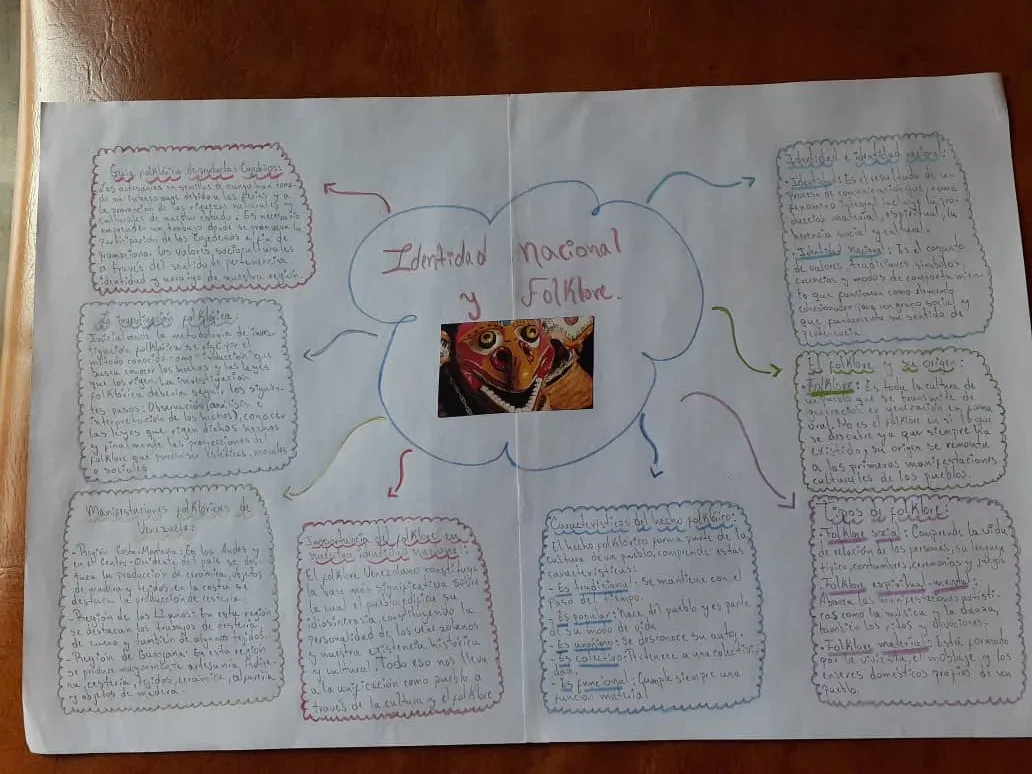 Identidad Nacional
y Folklore.
Guia folklórica de productos
Las artesanías en semillas de
de un interes auge debido a las ferias y a
la promoción de las riquezas naturales y
culturales de nuestro estado. Es necesario
emprender un trabajo donde se promueva la
participación de los a fin de
promocionar los valores socioculturales
a través del sentido de pertenencia
identidad y arraigo de nuestra región.
La investigación folklórica:
la metodología de inves-
tigación folklórica se rige por el
método conocido como inducción que
busca conocer los hechos y las leyes
que los rigen. La investigación
folklórica debería seguir los siguien-
tes pasos: Observación (análisis e
interpretación de los hechos), conocer
las leyes que rigen dichos hechos
y finalmente las proyecciones del
folklore que pueden ser estéticas, morales
o sociales.
Manifestaciones folklóricas de
Venezuela:
- Región Costa-Montaña: En los Andes y
en el Centro-Occidente del país se des-
taca la producción de cerámica, objetos
de madera y tejidos, en la costa se
destaca la producción de cestería.
- Región de los Llanos: En esta región
se destacan los trabajos de cestería
de cuero y también de algunos tejidos.
- Región de Guayana: En esta región
se produce mayormente artesanía indíge-
na, cestería, tejidos, cerámica, alfarería
y objetos de madera.
Importancia del folklore en
nuestra identidad nacional:
El folklore Venezolano constituye
la base más significativa sobre
la cual el pueblo edifica su
idiosincrasia, constituyendo la
personalidad de los venezolanos
y nuestra existencia histórica
y cultural. Todo eso nos lleva
a la unificación como pueblo a
través de la cultura y el folklore
Características del hecho folklórico:
El hecho folklórico forma parte de la
cultura de un pueblo, comprende estas
características:
- Es tradicional: Se mantiene con el
paso del tiempo.
- Es popular: Nace del pueblo y es parte
de su modo de vida
- Es anónimo: se desconoce su autor.
- Es colectivo: Pertenece a una colectivi-
dad.
- Es funcional: Cumple siempre una
función material
Identidad e identidad nacional:
- Identidad: Es el resultado de un
proceso de comunicación que, como
fenómeno integral incluye la pro-
ducción material, espiritual, la
herencia social y cultural.
- Identidad Nacional: Es el conjunto
de valores, tradiciones símbolos,
creencias y modos de comportamien-
to que funcionan como elemento
cohesionador para un grupo social y
que fundamenta su sentido de
pertenencia
El folklore y su origen:
Folklore: Es toda la cultura de
un pueblo que se transmite de
generación en generación en forma
oral. No es el folklore en sí lo que
se descubre ya que siempre ha
existido, su origen se remonta
a las primeras manifestaciones
culturales de los pueblos.
Tipos de folklore:
- Folklore social: Comprende la vida
de relación de las personas, su lenguaje
típico, costumbres, ceremonias y juegos
- Folklore espiritual-mental:
Abarca las manifestaciones artísti-
cas como la música y la danza,
también los ritos y devociones.
- Folklore material: Está formado
por la vivienda, el moblaje y los
enseres domésticos propios de un
pueblo.